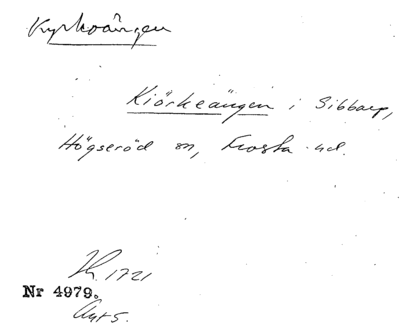 Kyrkoängen
Kiörkeängen i Sibbarp,
Högseröd sn, Frosta hd.
1721
Nr 4979.